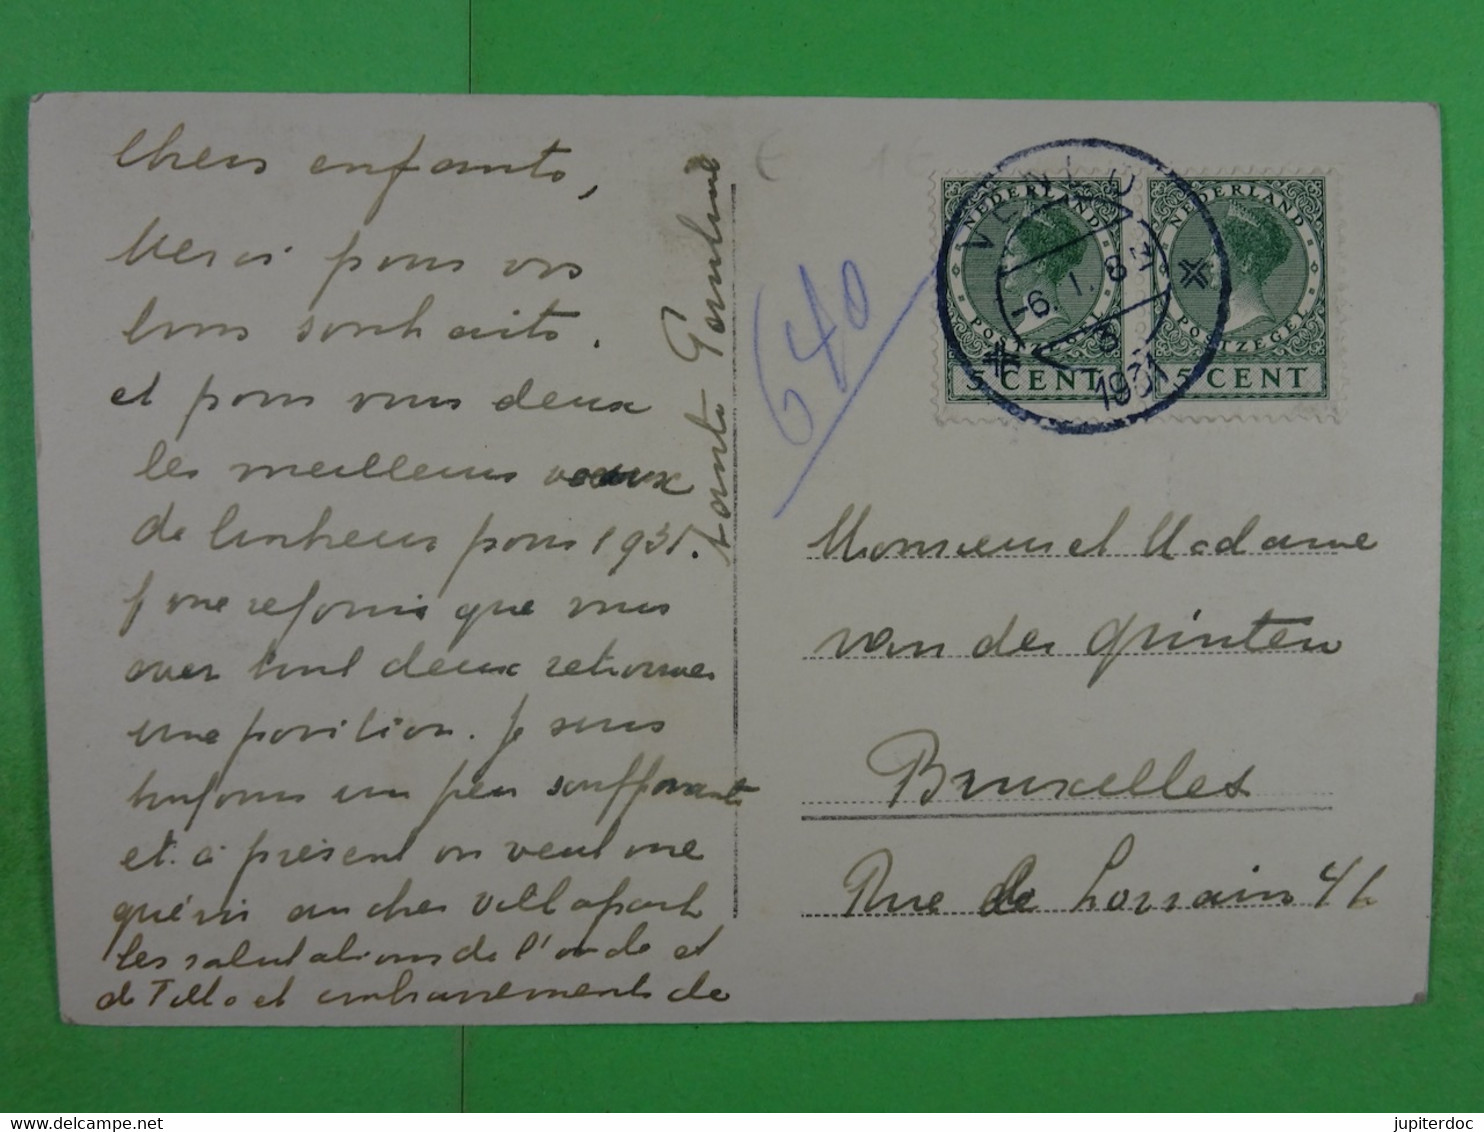 Chers enfants,
Merci pour vos
bons souhaits.
et pour vous deux
les meilleurs voeux
de bonheur pour 1931.
que vous
tout deux retrouver
une position. Je suis
toujours un peu souffrante
et à présent on veut me
guérir
les salutations de l'oncle et
de Tilla et embrassements de
tante Pauline
640
NEDERLAND
POSTZEGEL
5 CENT
NEDERLAND
POSTZEGEL
5 CENT
VENLO
-6.I.8
1931
Monsieur et Madame
van der Grinten
Bruxelles
Rue de Lorrain
jupiterdoc
delcampe.net